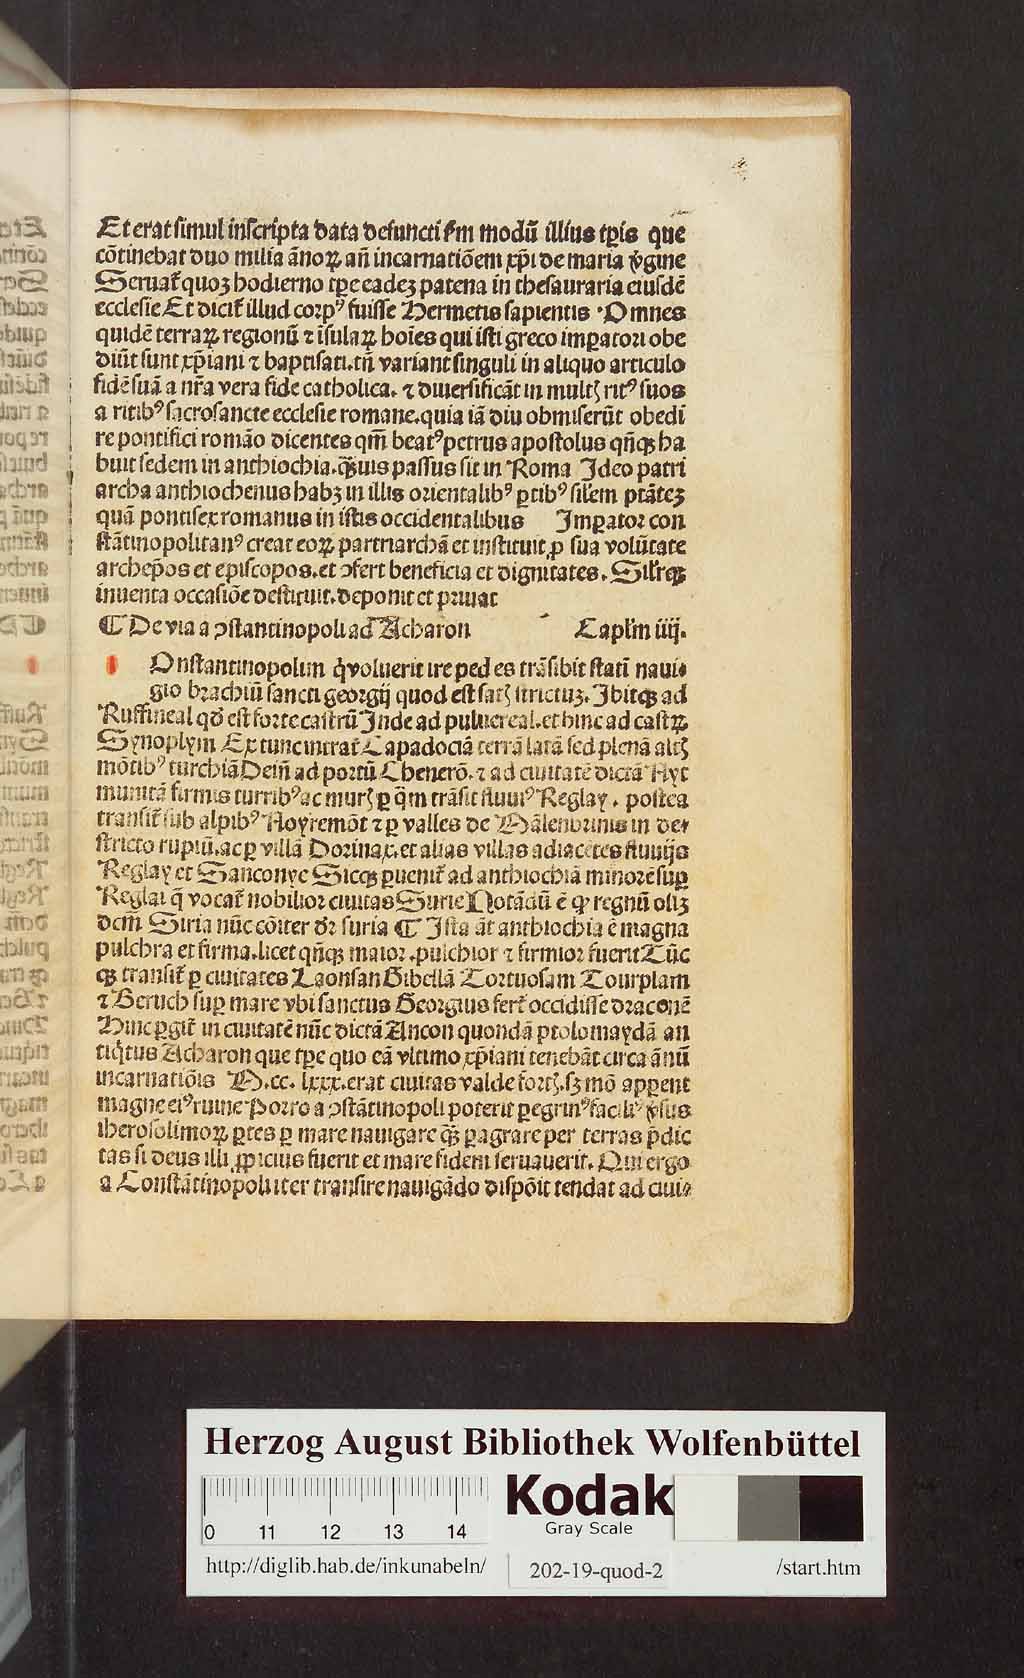 Et erat simul inscripta data defuncti ẜm modū illius tp̄is que
cōtinebat duo milia ānoꝝ an̄ incarnatiōem xp̄i de maria v̾gine
Seruat᷑ quoqꝫ hodierno tp̄e eadeꝫ patena in thesauraria eiusdē
ecclesie Et dicit᷑ illud corpꝰ fuisse Hermetis sapientis · Omnes
quidē terraꝝ regionū ⁊ īsulaꝝ hoīes qui isti greco imꝑatori obe
diūt sunt xp̄iani ⁊ baptisati. tn̄ variant singuli in aliquo articulo
fidē suā a nr̄a vera fide catholica. ⁊ diuersificāt in multꝭ ritꝰ suos
a ritibꝰ sacrosancte ecclesie romane. quia iā diu obmiserūt obedi
re pontifici romāo dicentes qm̄ beatꝰ petrus apostolus qn̄qꝫ ha
buit sedem in anthiochia. qȝuis passus sit in Roma Ideo patri
archa anthiochenus habꝫ in illis orientalibꝰ ꝑtibꝰ sil̄em ptāteꝫ
quā pontifex romanus in istis occidentalibus Imꝑator con
stātinopolitanꝰ creat eoꝝ partriarchā et instituit ꝓ sua volūtate
archep̄os et episcopos. et ꝯfert beneficia et dignitates. Sil̄rqꝫ
inuenta occasiōe destituit. deponit et priuat
¶ De via a ꝯstantinopoli ad Acharon Capl'm iiij.
Onstantinopolim q̇ voluerit ire ped es trāsibit statī naui⸗
gio brachiū sancti georgij quod est satꝭ strictuꝫ. Ibitqꝫ ad
Ruffineal qd̾ est forte castrū Inde ad puluereal. et hinc ad castꝝ
Synoplym Ex tunc intrat᷑ Capadociā terrā latā sed plenā altꝭ
mōtibꝰ turchiā Dein̄ ad portū Chenerō. ⁊ ad ciuitatē dictā Nyt
munitā firmis turribꝰ ac murꝭ ꝑ q̄m trāsit fluuiꝰ Reglay. postea
transit᷑ sub alpibꝰ Noyremōt ⁊ ꝑ valles de Mālenbrinis in de⸗
stricto rupiū. ac ꝑ villā Dorinax. et alias villas adiacētes fluuijs
Reglay et Sanconyc Sicqꝫ ꝑuenit᷑ ad anthiochiā minorē suꝑ
Reglai q̄ vocat᷑ nobilior ciuitas Surie Notādū ē ꝙ regnū olī
dcm̄ Siria nūc cōiter dr̄ suria ¶ Ista āt anthiochia ē magna
pulchra et firma. licet qn̄qꝫ maior. pulchior ⁊ firmior fuerit Tūc
qꝫ transit᷑ ꝑ ciuitates Laonsan Gibellā Tortuosam Tourplam
⁊ Beruch suꝑ mare vbi sanctus Georgius fert᷑ occidisse draconē
Hinc ꝑgit᷑ in ciuitatē nūc dictā Ancon quondā ptolomaydā an
tiq̇tus Acharon que tp̄e quo eā vltimo xp̄iani tenebāt circa ānū
incarnatiōis M.cc. lxxx. erat ciuitas valde fortꝭ. sꝫ mō apparent
magne eiꝰ ruine Porro a ꝯstātinopoli poterit ꝑegrinꝰ faciliꝰ v̾sus
iherosolimoꝝ ꝑtes ꝑ mare nauigare qȝ ꝑagrare per terras p̄dic
tas si deus illi ꝓpicius fuerit et mare fidem seruauerit. Qui ergo
a Constātinopoli iter transire nauigādo dispōit tendat ad ciui⸗
Herzog August Bibliothek Wolfenbüttel
0 11 12 13 14
Kodak
Gray Scale
http://diglib.hab.de/inkunabeln/ 202-19-quod-2 /start.htm